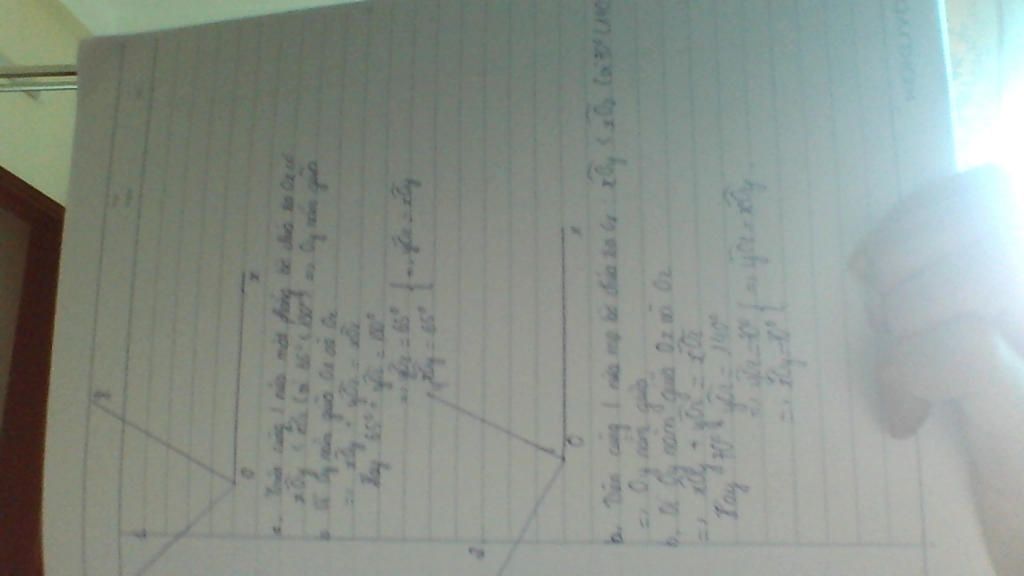 1
y
O
x
a. Trên cùng 1 nửa mặt phẳng bờ chứa tia Ox có
xOy < xOz (65° < 130°) => Oy nằm giữa
b. Vì Oy nằm giữa Ox và Oz
=> xOy + yOz = xOz
Hay 65° + yOz = 130°
=> yOz = 65°
xOy = 65° } => yOz = xOy
2
O
x
a. Trên cùng 1 nửa mp bờ chứa tia Ox: xOy < xOz
=> Oy nằm giữa
b. Vì Oy nằm giữa Ox và Oz
=> xOy + yOz = xOz
Hay 70° + yOz = 140°
=> yOz = 70°
=> xOy = 70° } => yOz = xOy.